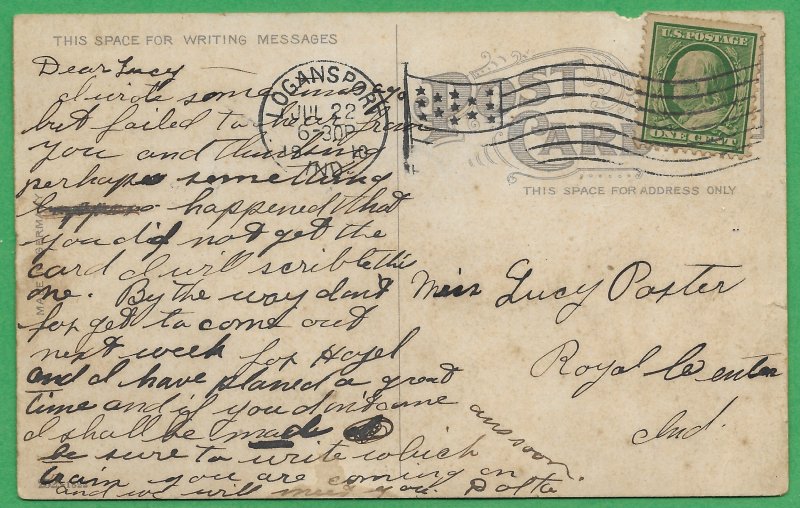 THIS SPACE FOR WRITING MESSAGES
Dear Lucy
I wrote some
but failed to hear from
you and thinking
perhaps something
happened that
you did not get the
card I will scrible this
one. By the way don't
forget to come out
next week for Hazel
and I have planed a great
time and if you don't come
I shall be mad
be sure to write which
train you are coming on
and we will meet you.
ans soon.
MADE GERMANY
LOGANSPORT
JUL 22
6-30P
IND.
POST
CARD
U.S. POSTAGE
ONE CENT
THIS SPACE FOR ADDRESS ONLY
Miss Lucy Porter
Royal Center
Ind.